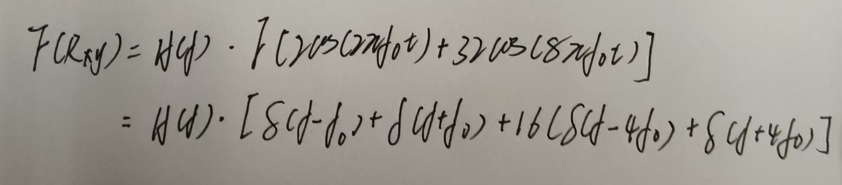 F(Rxy) = H(f) · F[2cos(2πf₀t) + 32cos(8πf₀t)]
= H(f) · [δ(f-f₀) + δ(f+f₀) + 16(δ(f-4f₀) + δ(f+4f₀)]